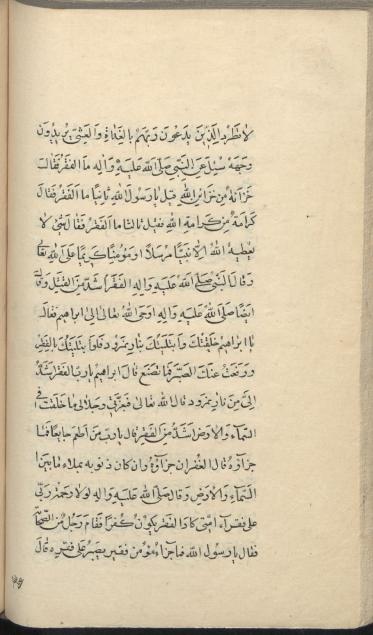 لا تطرد الذين يدعون ربهم بالغداة والعشي يريدون
وجهه سئل عن النبي صلى الله عليه واله ما الفقر فقال
خزانة من خزائن الله قيل يا رسول الله ثانيا ما الفقر فقال
كرامة من كرامة الله فقيل ثالثا ما الفقر فقال شئ لا
يعطيه الله الا نبيا مرسلا او مؤمنا كريما على الله تعالى
وقال النبي صلى الله عليه واله الفقر اشد من القتل وقال
النبي صلى الله عليه واله اوحى الله تعالى الى ابراهيم فقال
يا ابراهيم خلقتك وابتليتك بنار نمرود فلو ابتليتك بالفقر
ورفعت عنك الصبر فما تصنع قال ابراهيم يا رب الفقر اشد
الي من نار نمرود قال الله تعالى فبعزتي وجلالي ما خلقت في
السماء والارض اشد من الفقر قال يا رب من اطعم جايعا فما
جزاؤه قال الغفران جزاؤه وان كان ذنوبه يملاء ما بين
السماء والارض وقال صلى الله عليه واله لولا رحمة ربي
على فقراء امتي كاد الفقر يكون كفرا فقام رجل من الصحابة
فقال يا رسول الله فما جزاء مؤمن فقير يصبر على فقره قال